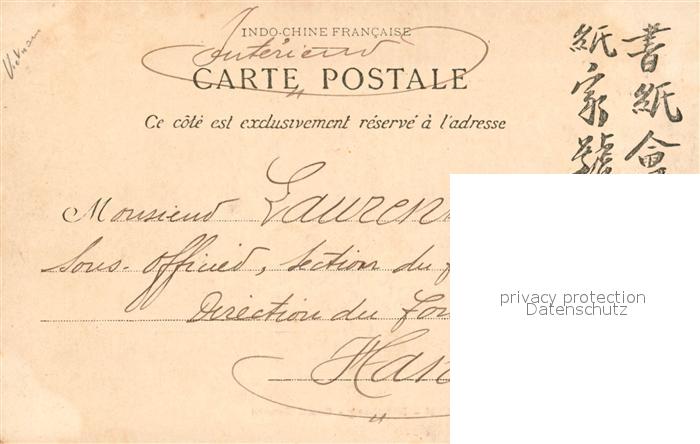 Vietnam
INDO-CHINE FRANÇAISE
Intérieur
CARTE POSTALE
Ce côté est exclusivement réservé à l'adresse
書紙會
紙家號
Monsieur Lauren
Sous-Officier, Section du
Direction du
privacy protection
Datenschutz